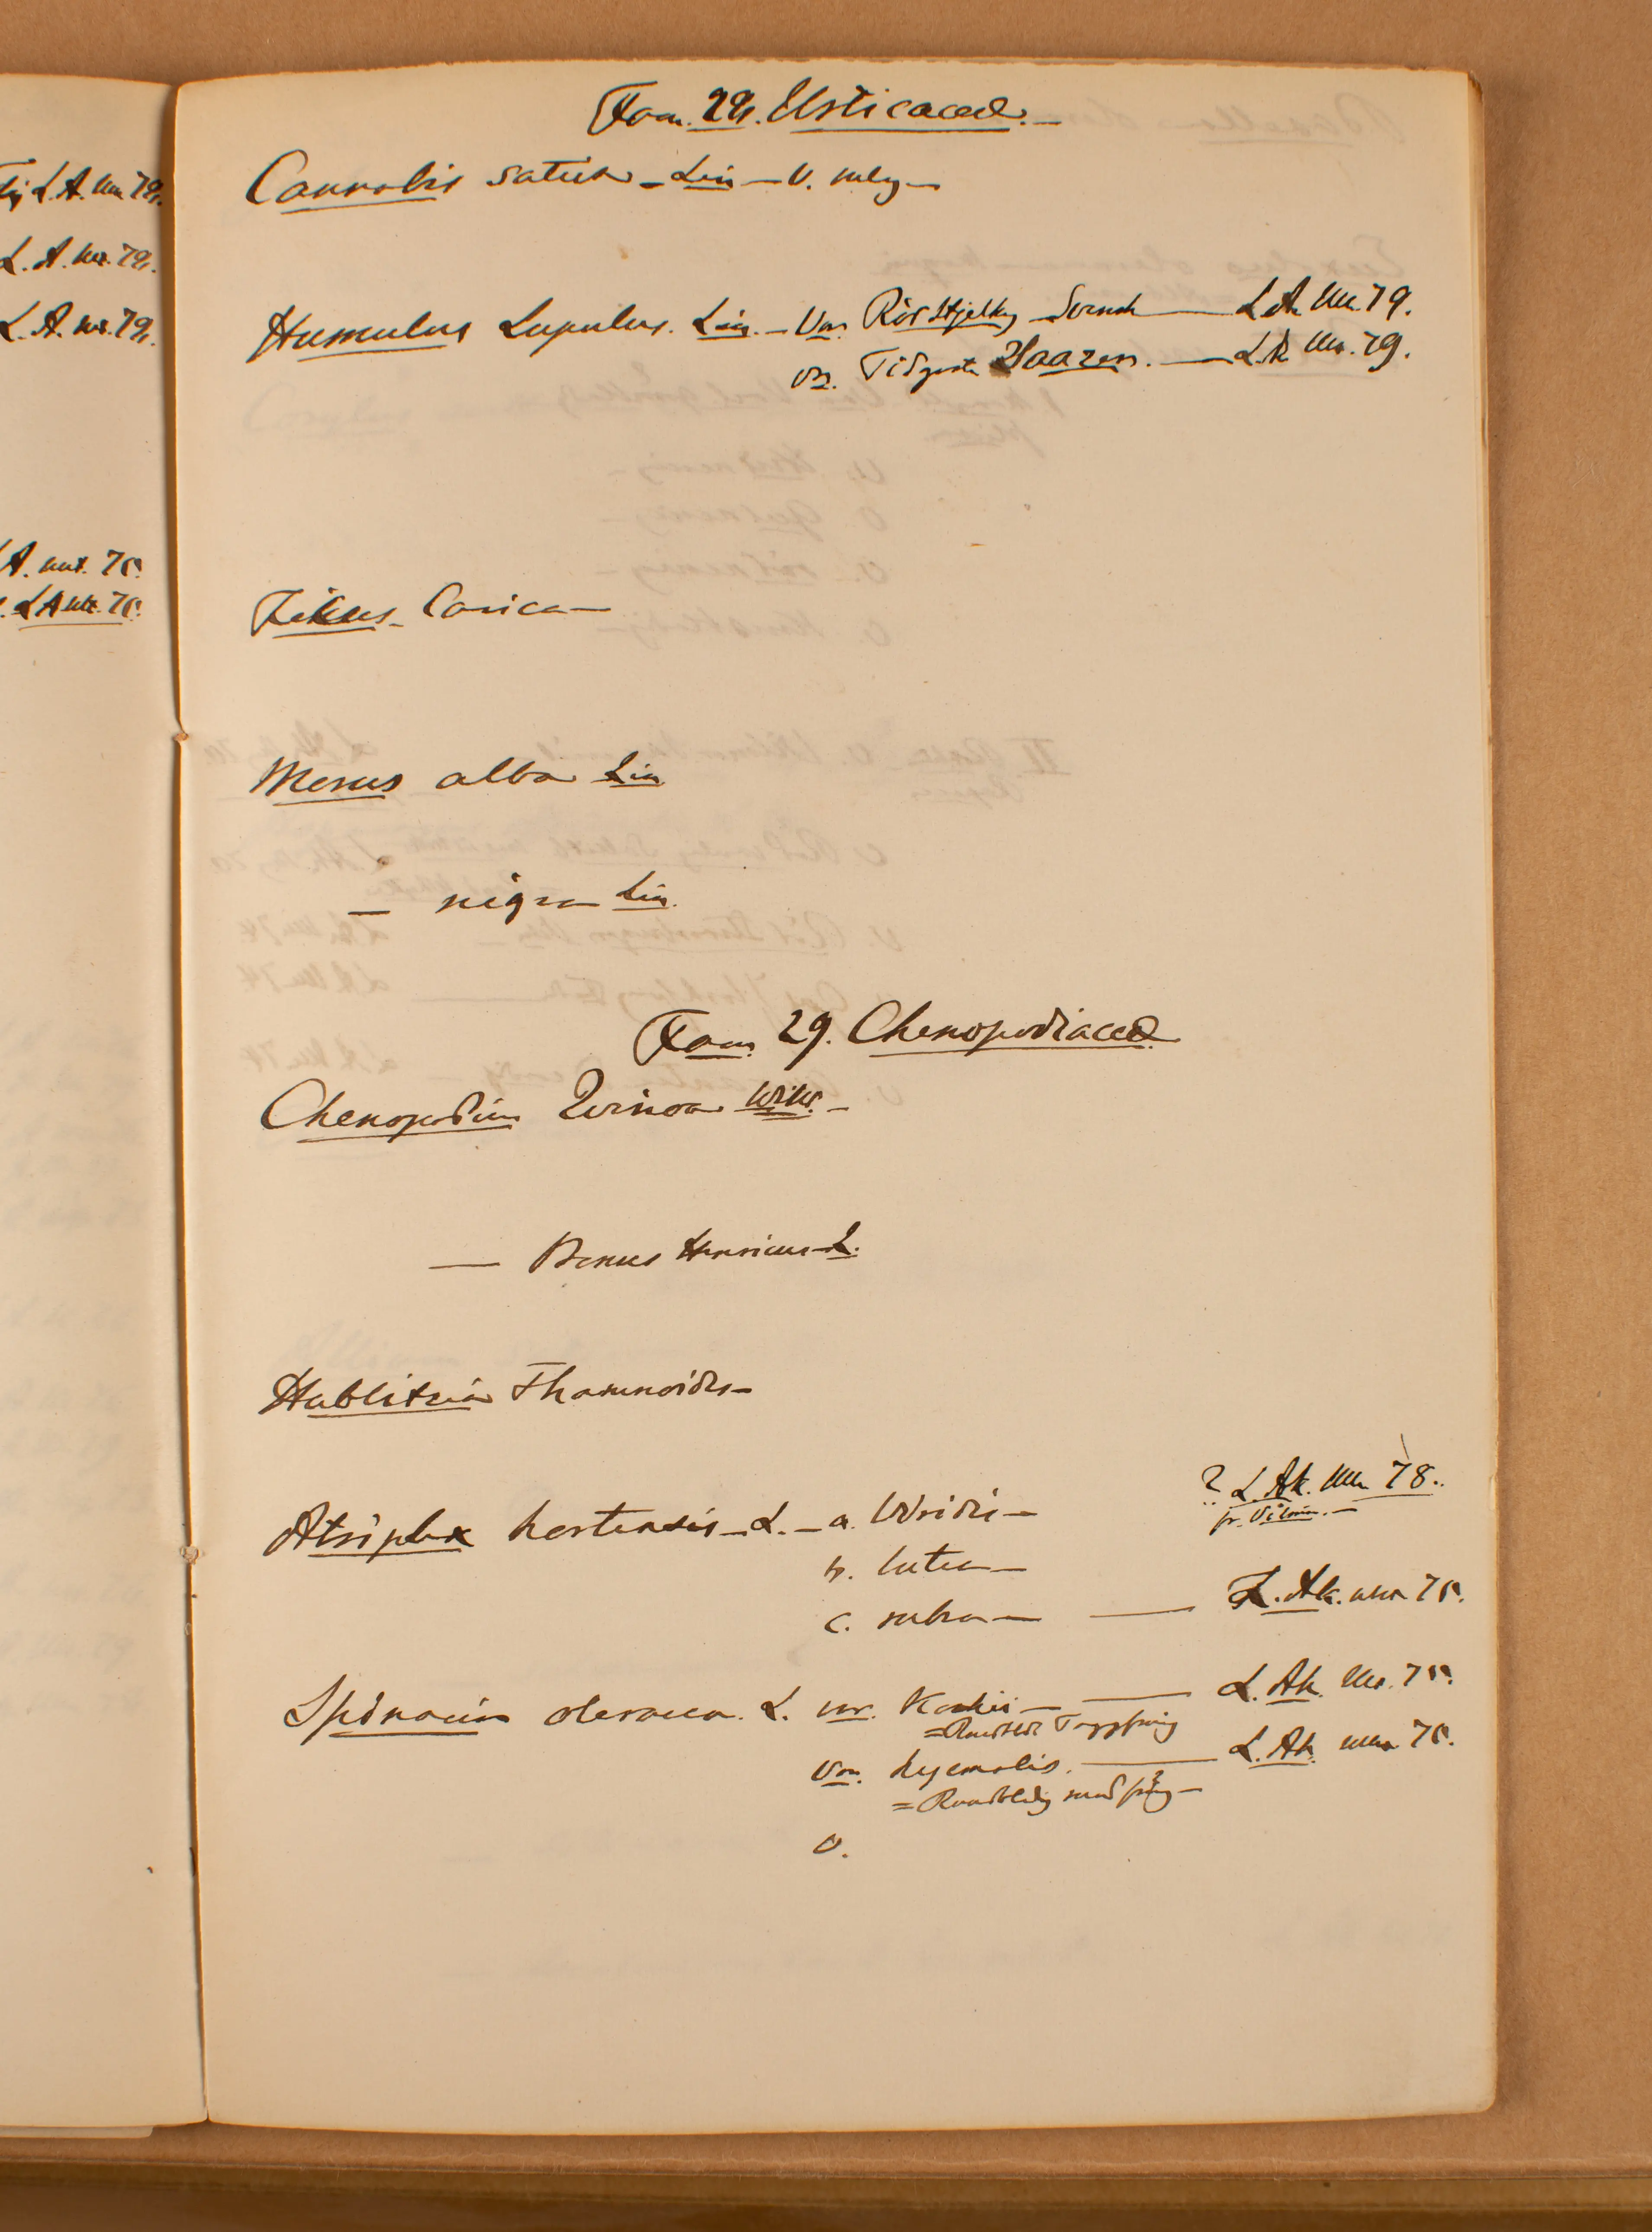 L. A. Mus 79.
L. A. Mus. 79.
L. A. Mus. 79.
A. Mus. 75.
L A Mus. 75.
Fam. 28. Urticaceæ.—
Cannabis sativa – Lin – v. vulg –
Humulus Lupulus. Lin. – Var. Rödstjelket Svensk — L A. Mus. 79.
var. Tidigaste Saazer. — L. A. Mus. 79.
Fikus Carica —
Morus alba Lin
— nigra Lin.
Fam. 29. Chenopodiaceæ
Chenopodium Quinoa Willd. –
— Bonus Henricus L.
Hablitzia Thamnoides –
Atriplex hortensis – L. – a. Viridis — ? L. Ak. Mus 78.
fr. Vilmor. –
b. lutea —
c. rubra — — L. Ak. Mus 75.
Spinacia oleracea. L. var. — L. Ak. Mus. 75.
=
Var. hyemalis. — L. Ak. Mus 75.
=
v.